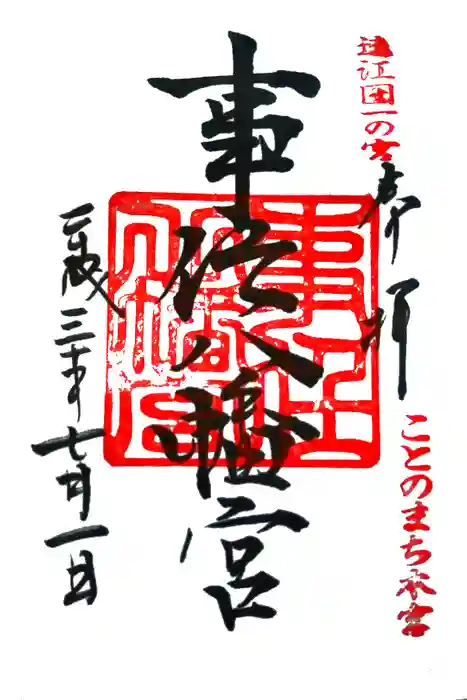 遠江国一の宮
奉拝
ことのまち本宮
事任八幡宮
事任
八幡宮
平成三十年七月一日